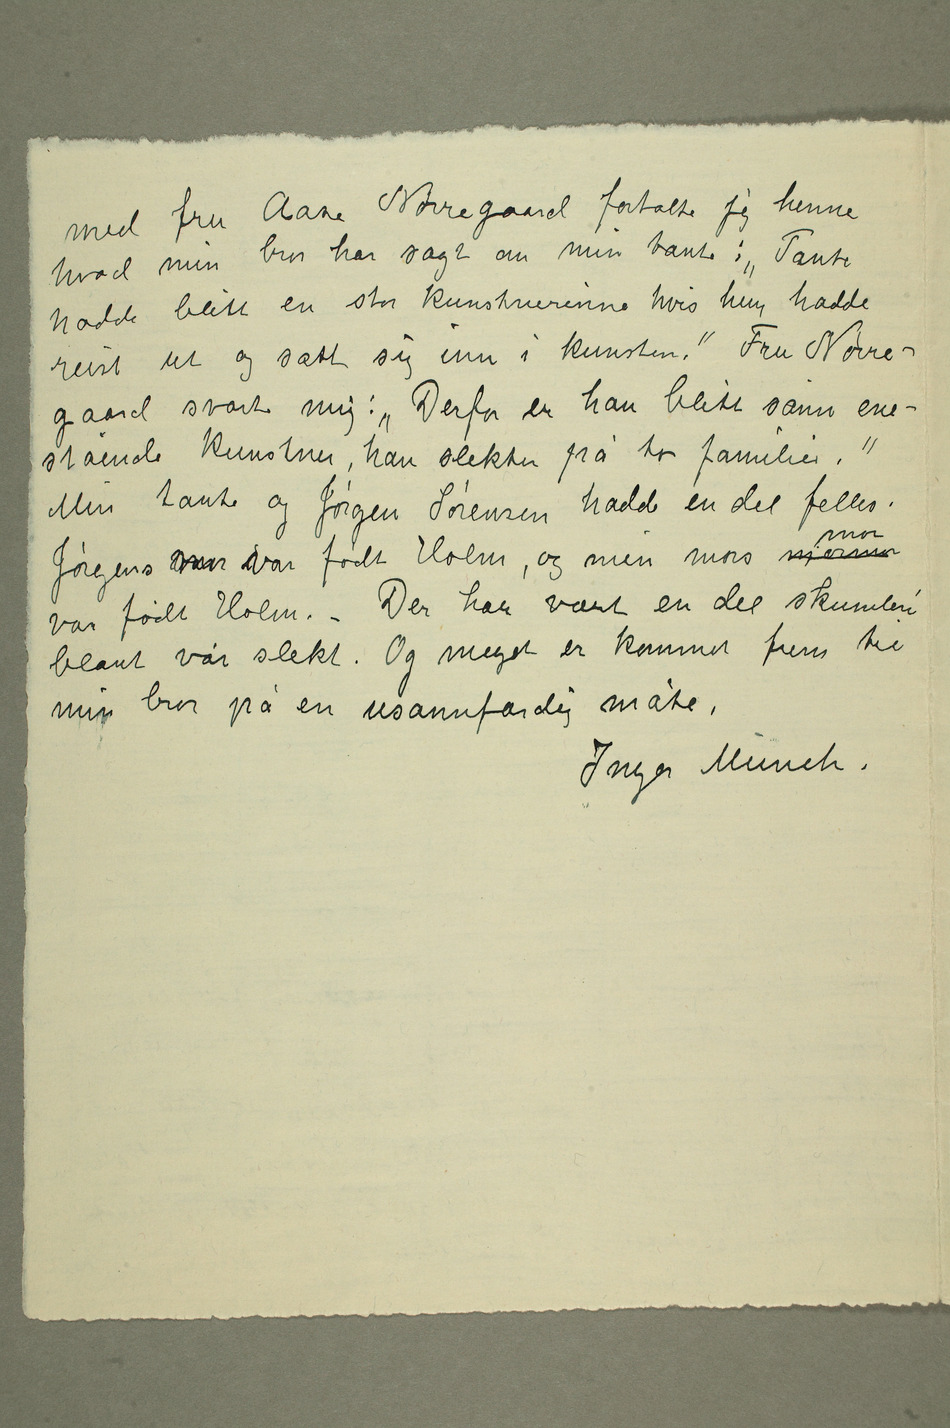 med fru Aase Nørregaard fortalte jeg henne
hvad min bror har sagt om min tante: „Tante
hadde blitt en stor kunstnerinne hvis hun hadde
reist ut og satt sig inn i kunsten.“ Fru Nørre-
gaard svarte mig: „Derfor er han blitt sånn ene-
stående kunstner, han slekter på to familier.“
Min tante og Jørgen Sørensen hadde en del felles.
Jørgens mor var født Holm, og min mors mormor mor
var født Holm. – Der har vært en del skumleri
blant vår slekt. Og meget er kommet frem til
min bror på en usannferdig måte.
Inger Munch.